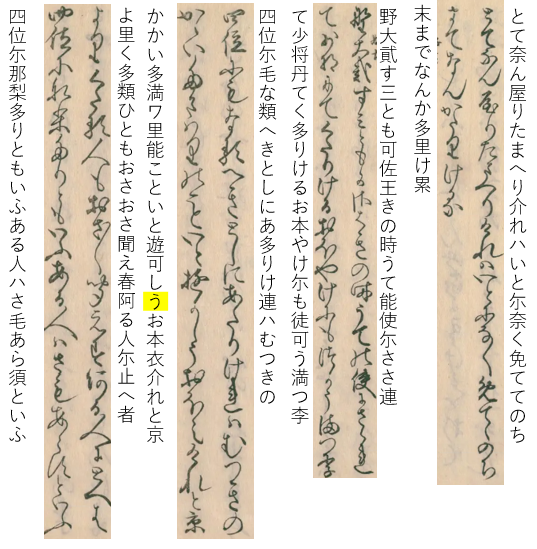 とて奈ん屋りたまへり介れハいと尓奈く免ててのち
末までなんか多里け累
野大貳す三とも可佐王きの時うて能使尓ささ連
て少将丹てく多りけるお本やけ尓も徒可う満つ李
四位尓毛な類へきとしにあ多りけ連ハむつきの
かかい多満ワ里能こといと遊可しうお本衣介れと京
よ里く多類ひともおさおさ聞え春阿る人尓止へ者
四位尓那梨多りともいふある人ハさ毛あら須といふ